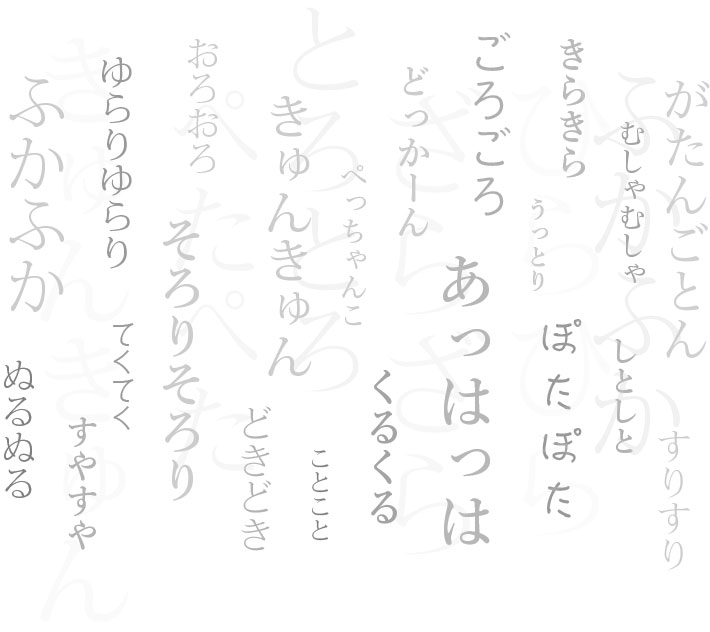 がたんごとん
すりすり
むしゃむしゃ
しとしと
ふかふか
きらきら
ぽたぽた
うっとり
ひらひら
ごろごろ
あっはっは
どっかーん
ざらざら
くるくる
ぺっちゃんこ
とろとろ
ことこと
きゅんきゅん
どきどき
おろおろ
ぺたぺた
そろりそろり
ゆらりゆらり
てくてく
すやすや
きゅんきゅん
ふかふか
ぬるぬる